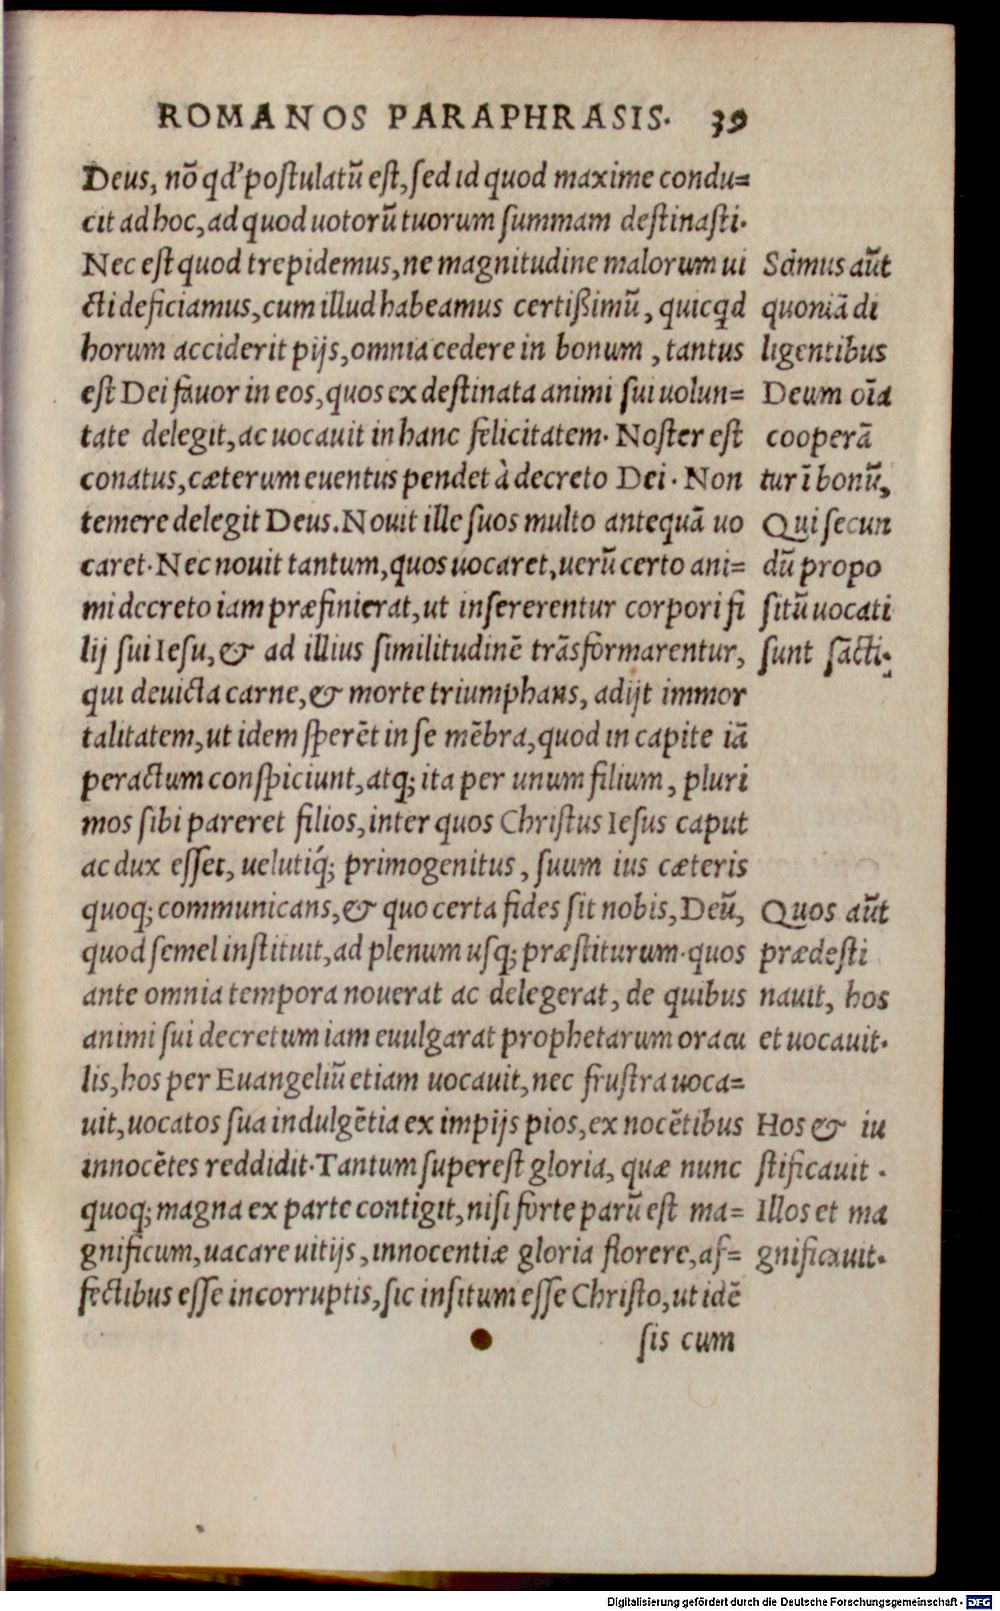 ROMANOS PARAPHRASIS. 39
Deus, nõ qd' postulatũ est, sed id quod maxime condu=
cit ad hoc, ad quod uotorũ tuorum summam destinasti.
Nec est quod trepidemus, ne magnitudine malorum ui
cti deficiamus, cum illud habeamus certißimũ, quicqd
horum acciderit pijs, omnia cedere in bonum, tantus
est Dei fauor in eos, quos ex destinata animi sui uolun=
tate delegit, ac uocauit in hanc felicitatem. Noster est
conatus, cæterum euentus pendet à decreto Dei. Non
temere delegit Deus. Nouit ille suos multo antequã uo
caret. Nec nouit tantum, quos uocaret, uerũ certo ani=
mi decreto iam præfinierat, ut insererentur corpori fi
lij sui Iesu, & ad illius similitudinẽ trãsformarentur,
qui deuicta carne, & morte triumphans, adijt immor
talitatem, ut idem sperẽt in se mẽbra, quod in capite iã
peractum conspiciunt, atq; ita per unum filium, pluri
mos sibi pareret filios, inter quos Christus Iesus caput
ac dux esset, uelutiq́; primogenitus, suum ius cæteris
quoq; communicans, & quo certa fides sit nobis, Deũ,
quod semel instituit, ad plenum usq; præstiturum. quos
ante omnia tempora nouerat ac delegerat, de quibus
animi sui decretum iam euulgarat prophetarum oracu
lis, hos per Euangeliũ etiam uocauit, nec frustra uoca=
uit, uocatos sua indulgẽtia ex impijs pios, ex nocẽtibus
innocẽtes reddidit. Tantum superest gloria, quæ nunc
quoq; magna ex parte contigit, nisi forte parũ est ma=
gnificum, uacare uitijs, innocentiæ gloria florere, af=
fectibus esse incorruptis, sic insitum esse Christo, ut idẽ
sis cum
Scimus aũt
quoniã di
ligentibus
Deum oĩa
cooperã
tur ĩ bonũ,
Qui secun
dũ propo
sitũ uocati
sunt sãcti.
Quos aũt
prædesti
nauit, hos
et uocauit.
Hos & iu
stificauit.
Illos et ma
gnificauit.
Digitalisierung gefördert durch die Deutsche Forschungsgemeinschaft - DFG